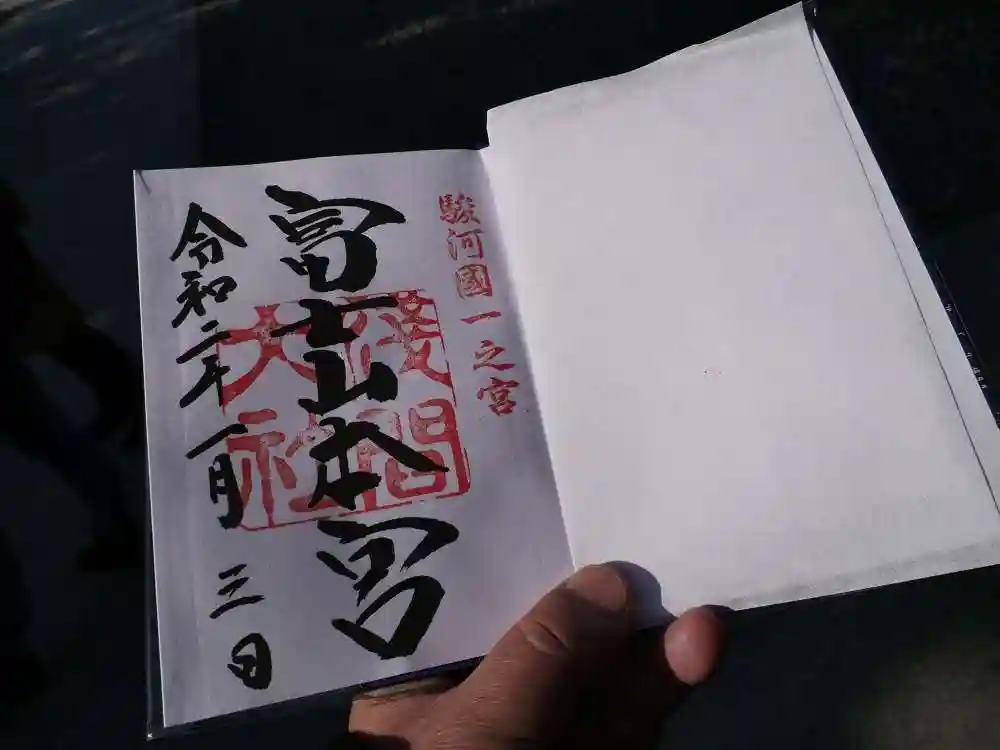 駿河國一之宮
富士山本宮
浅間大社
令和二年一月三日